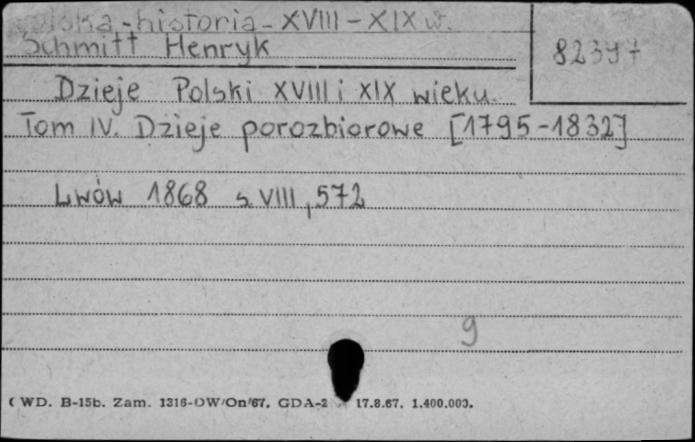 Polska - historia - XVIII - XIX w.
Schmitt Henryk
82397
Dzieje Polski XVIII i XIX wieku.
Tom IV. Dzieje porozbiorowe [1795-1832]
Lwów 1868 s. VIII, 572
9
WD. B-15b. Zam. 1316-DW/On/67. GDA-2 17.8.67. 1.400.000.